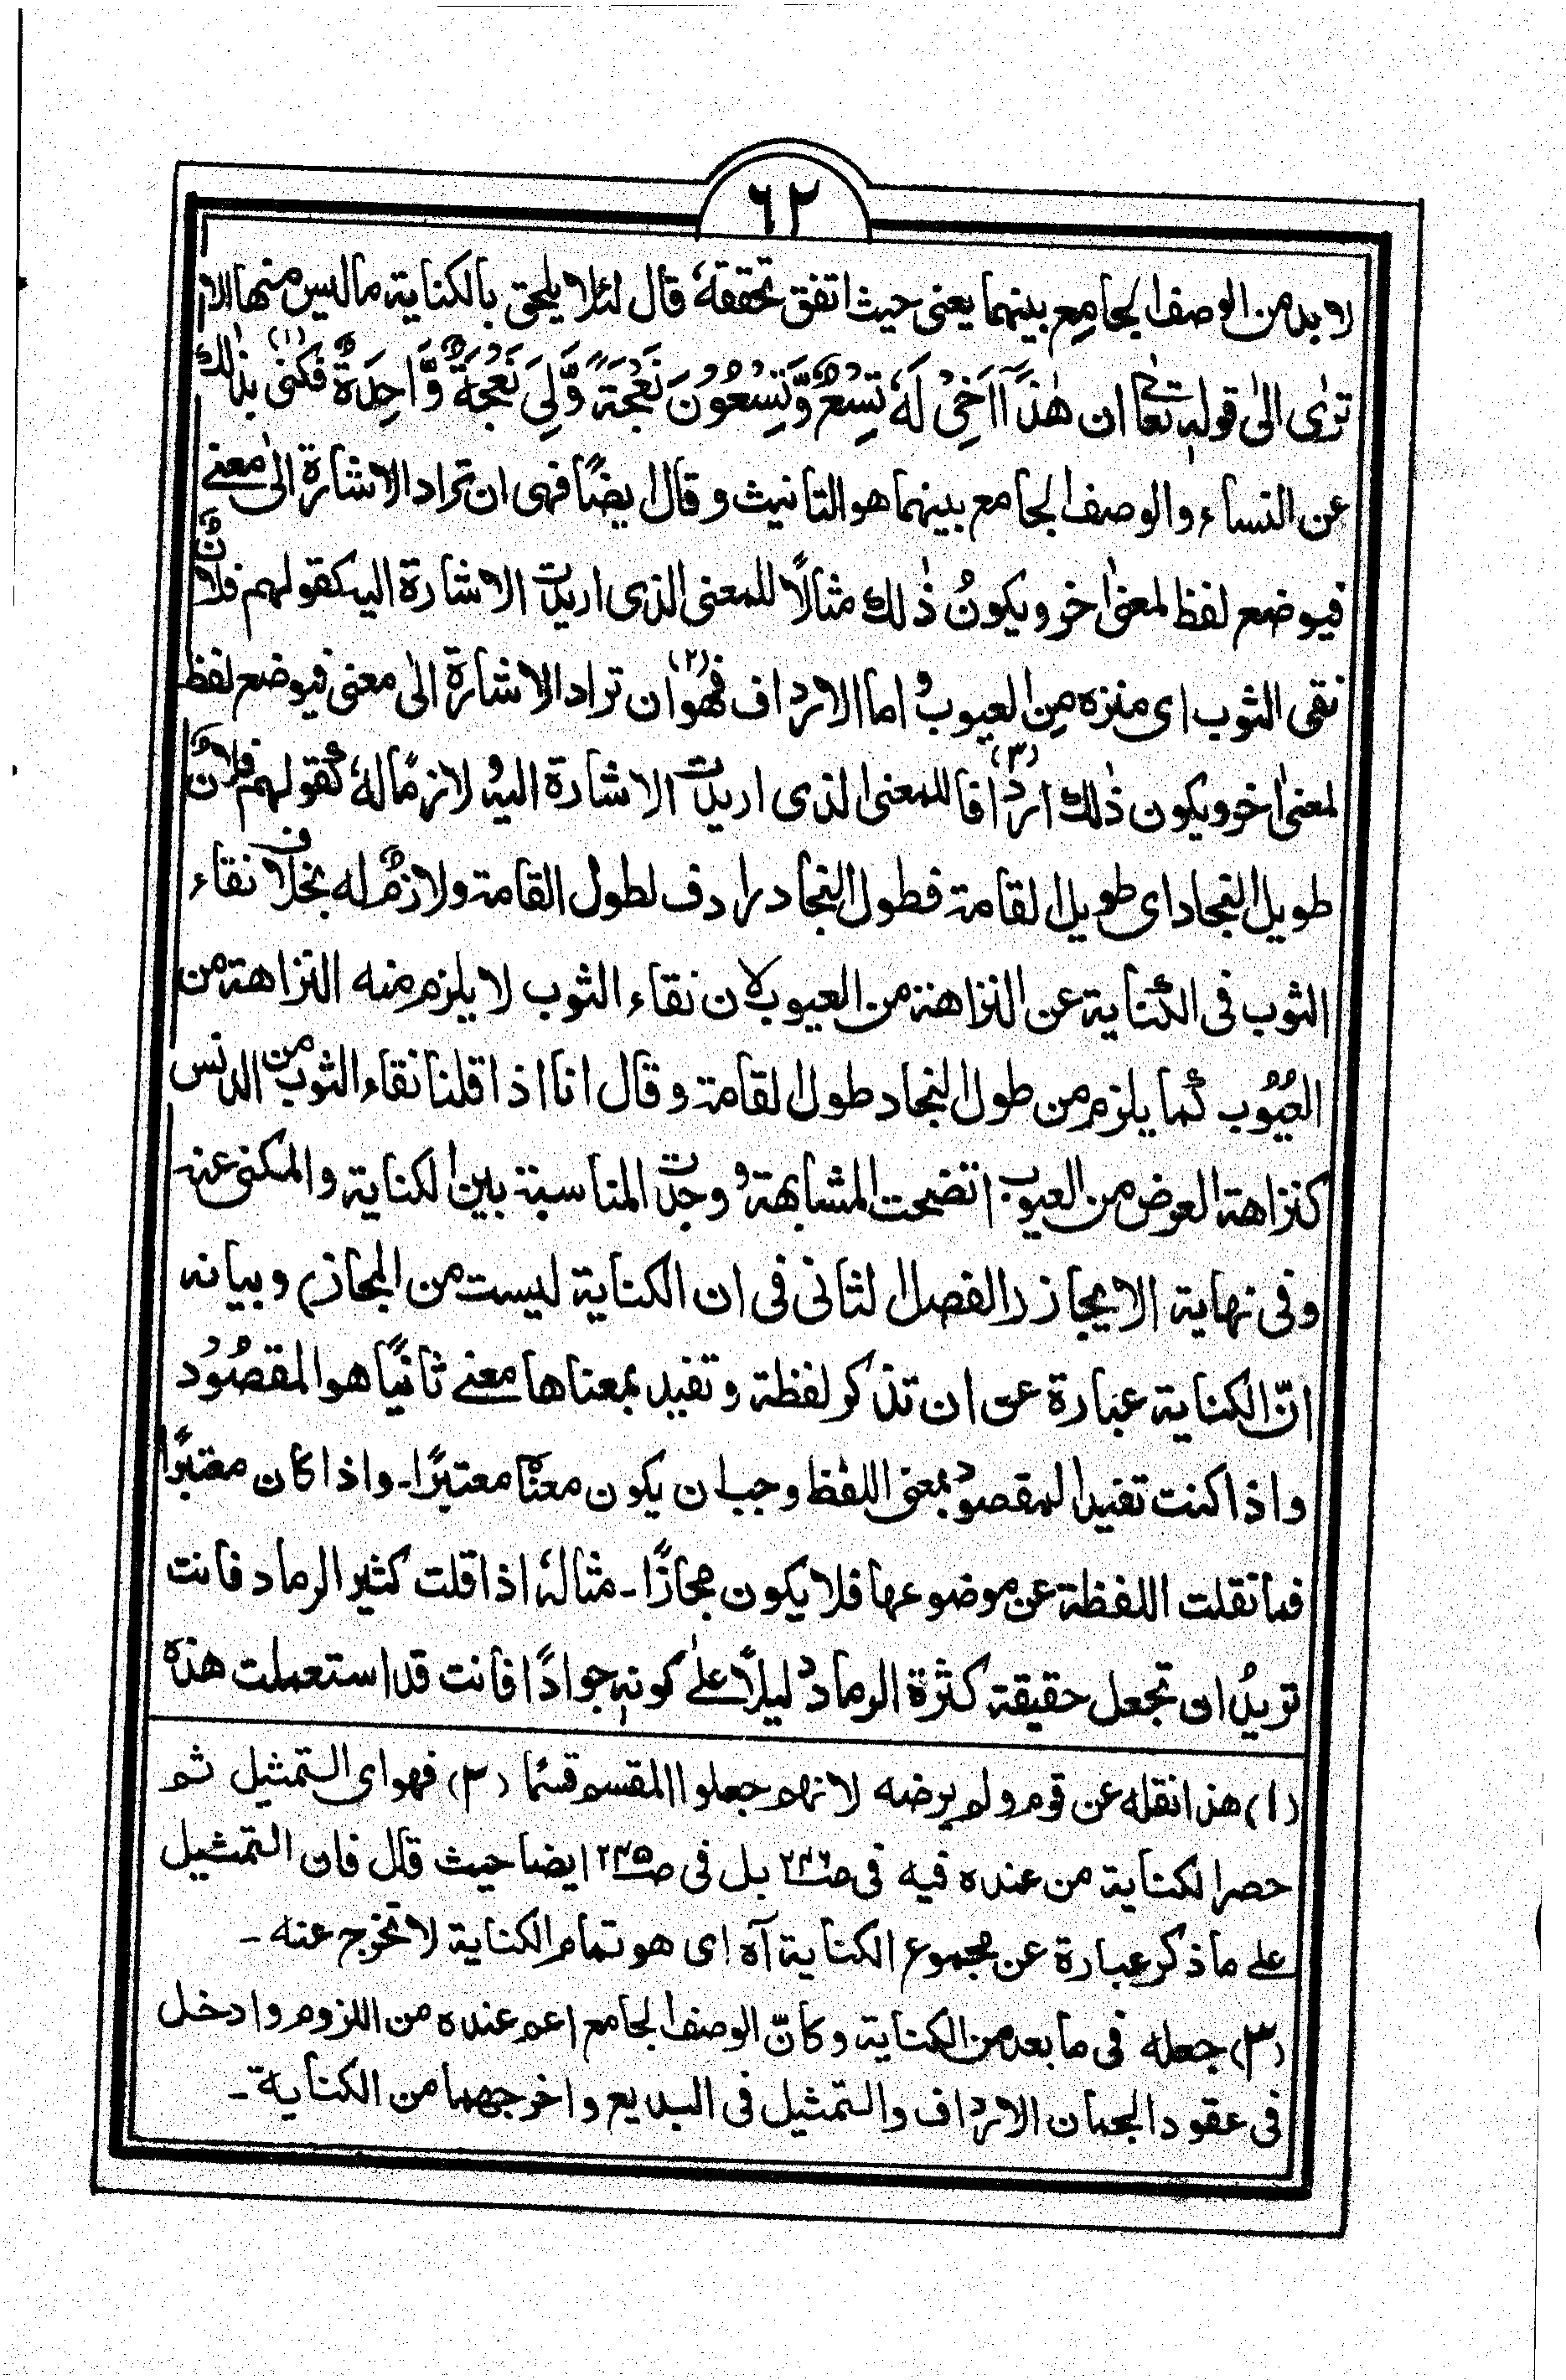 ٦٢
لا بد من الوصف الجامِع بينهما يعنى حيث اتفق تحققهٗ قال لئلا يلحق بالكناية ما ليس منها الا
ترٰى الىٰ قولهٖ تعالىٰ ان هٰذَآ اَخِىْ لَهٗ تِسْعٌ وَّتِسْعُوْنَ نَعْجَةً وَّلِىَ نَعْجَةٌ وَّاحِدَةٌ فكنٰى (١) بذٰلك
عن النساء والوصف الجامع بينهما هو التانيث وقال ايضًا فهى ان تراد الاشارة الىٰ معنے
فيوضع لفظ لمعنىٰ اخر ويكونُ ذٰلك مثالًا للمعنى الذى اريدت الاشارة اليه كقولهم فلانٌ
نقى الثوب اى منزه مِن العيوب و اما الارداف فهو (٢) ان تراد الاشارة الىٰ معنى فيوضع لفظ
لمعنىٰ اخر ويكون ذٰلك اردافا (٣) للمعنى الذى اريدت الاشارة اليه ولازمًا لهٗ كقولهم فلانٌ
طويل النجاد اى طويل القامة فطول النجاد رادف لطول القامة ولازمٌ له بخلاف نقاء
الثوب فى الكناية عن النزاهة من العيوب لان نقاء الثوب لا يلزم منه النزاهة من
العيُوب كما يلزم من طول النجاد طول القامة وقال انا اذا قلنا نقاء الثوب من الدنس
كنزاهة العرض من العيوب اتضحت المشابهة و وجدت المناسبة بين الكناية والمكنى عنه
وفى نهاية الايجاز (الفصل الثانى فى ان الكناية ليست من المجاز) وبيانه
انّ الكناية عبارة عن ان تذكر لفظة وتفيد بمعناها معنے ثانيًا هو المقصُوْد
واذا كنت تفيد المقصود بمعنى اللفظ وجب ان يكون معناهٗ معتبرًا۔ واذا كان معتبرًا
فما نقلت اللفظة عن موضوعها فلا يكون مجازًا۔ مثالهٗ اذا قلت كثير الرماد فانت
تريدُ ان تجعل حقيقة كثرة الرماد دليلًا علىٰ كونهٖ جوادًا فانت قد استعملت هذه
(١) هذا نقله عن قوم ولم يرضه لانهم جعلوا المقسم قسمًا (٢) فهو اى التمثيل ثم
حصر الكناية من عنده فيه فى صـ بل فى صـ٢٤٥ ايضا حيث قال فان التمثيل
علے ما ذكر عبارة عن مجموع الكناية آه اى هو تمام الكناية لا تخرج عنه ۔
(٣) جعله فى ما بعد من الكناية وكانّ الوصف الجامع اعم عنده من اللزوم وادخل
فى عقود الجمان الارداف والتمثيل فى البديع واخرجهما من الكناية ۔